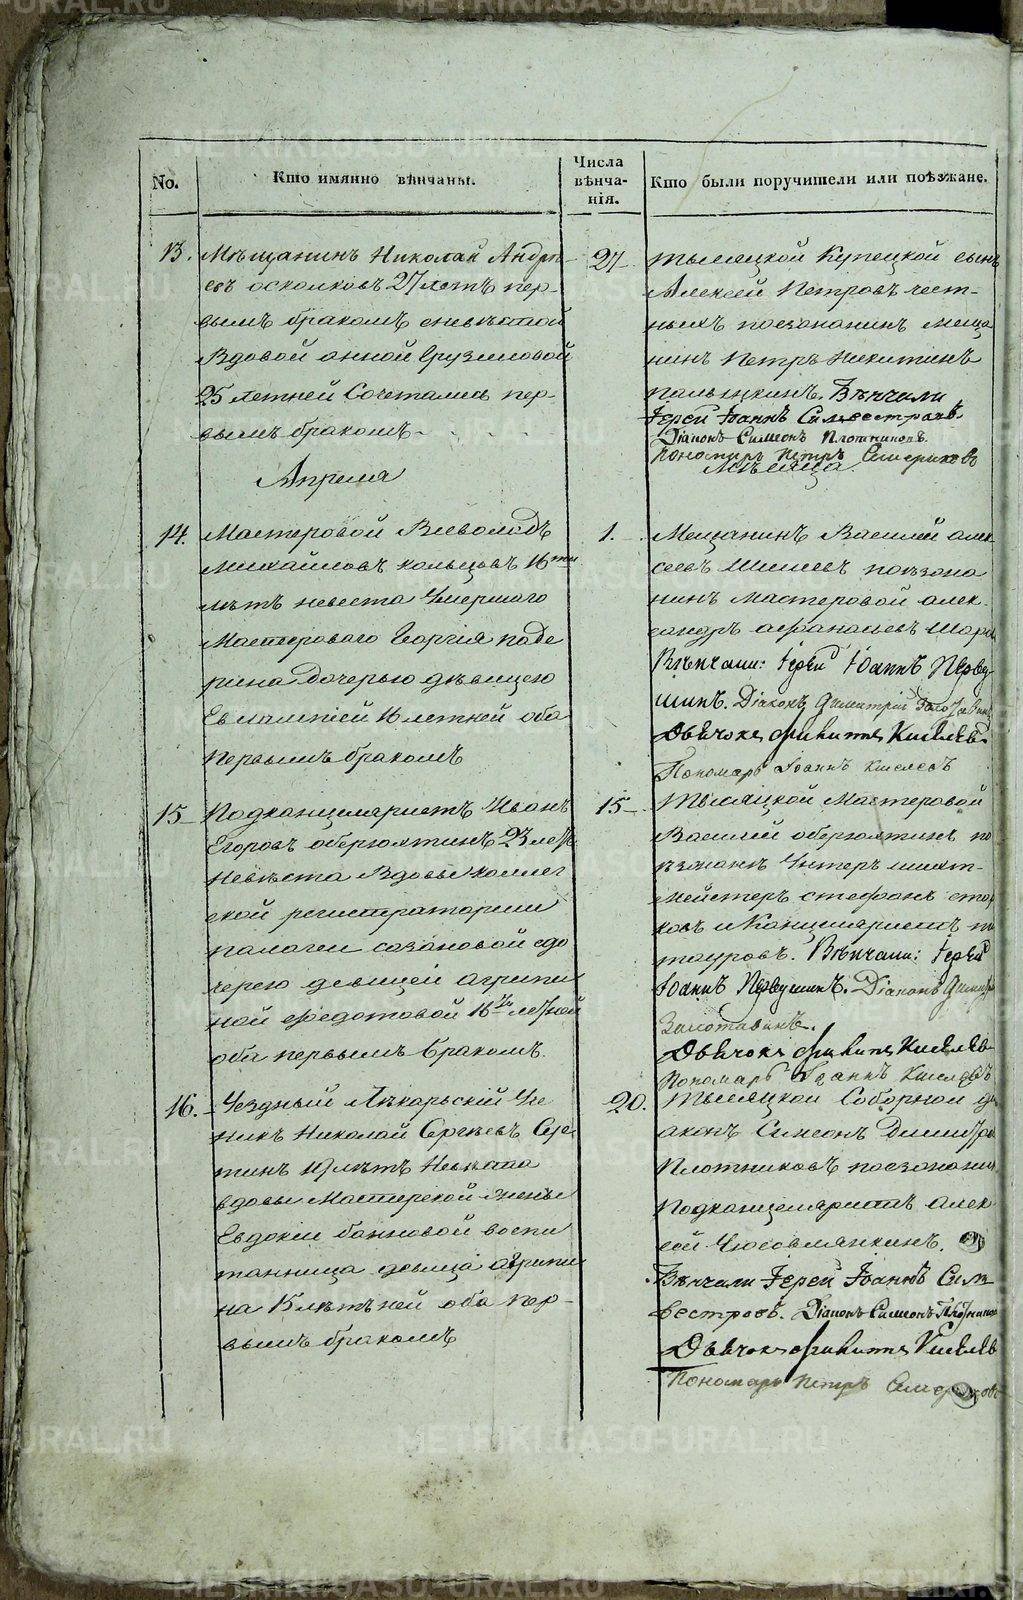 No.
Кто имянно вѣнчаны.
Числа
вѣнча-
нія.
Кто были поручители или поѣзжане.
13.
Мѣщанинъ Николай Андрѣ-
евъ осколковъ 27 летъ пер-
вымъ бракомъ сневѣстой
Вдовой анной
25 летней Сочетались пер-
вымъ бракомъ
27
тысяцкой Купецкой сынъ
Алексей Петровъ чест-
ныхъ поезжанинъ меща
нинъ Петръ Никитинъ
Вѣнчали
Іерей Іоаннъ Силвестровъ
Діаконъ Симеонъ Плотниковъ.
Пономарь Петръ
Апреля
Мѣсяца
14.
Мастеровой Всеволодъ
Михайловъ кольцовъ 16ти
лѣтъ невеста Умершаго
Мастероваго Георгія паде
рина дочерью дѣвицею
Евлампіей 16 летней оба
первымъ бракомъ
1.
Мещанинъ Василей алек
сеевъ поезжа
нинъ мастеровой алек
сандръ афанасьевъ
Вѣнчали: Іерей Іоаннъ Перву
шинъ. Діаконъ Димитрій
Дьячокъ Никита Киселевъ
Пономарь Іоаннъ Киселевъ
15
Подканцеляристъ Иванъ
Егоровъ оберюхтинъ 23 летъ
Невѣста Вдовы коллег
ской регистраторши
палагеи сазановой сдо
черею девицей агрипи
ной федотовой 16ти летной
оба первымъ бракомъ.
15
Тысяцкой Мастеровой
Василей оберюхтинъ по
ѣзжанъ Унтеръ шихт-
мейстеръ стефанъ
ковъ и Канцеляристъ
тауровъ. Вѣнчали: Іерей
Іоаннъ Первушинъ. Діаконъ Димитрій
Золотавинъ.
Дьячокъ Никита Киселевъ
Пономарь Іоаннъ Киселевъ
16.
Уездный Лѣкарьскій Уче
никъ Николай Сергѣевъ
тинъ 19 лѣтъ Невѣста
вдовы Мастерской жены
Евдокіи банновой воспи
танница девица агрипи
на 15 лѣтней оба пер-
вымъ бракомъ
20.
Тысяцкой Соборной ді
аконъ Симеонъ Димитріевъ
Плотниковъ поезжанинъ
Подканцеляристъ алек
сей Чюсовлянкинъ.
Вѣнчали Іерей Іоаннъ Сил
вестровъ. Діаконъ Симеонъ Плотниковъ
Дьячокъ Никита Киселевъ
Пономарь Петръ
METRIKI.GASO-URAL.RU